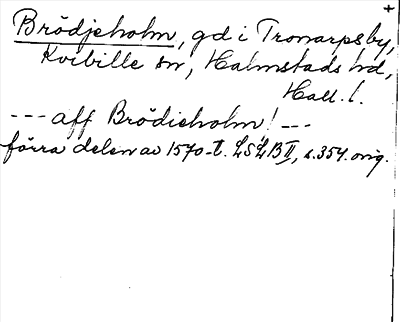 +
Brödjeholm, gd i Tronarps by,
Kvibille sn, Halmstads hd,
Hall. l.
--- aff Brödieholm! ---
förra delen av 1570-t. LSLB II, s. 354. orig.